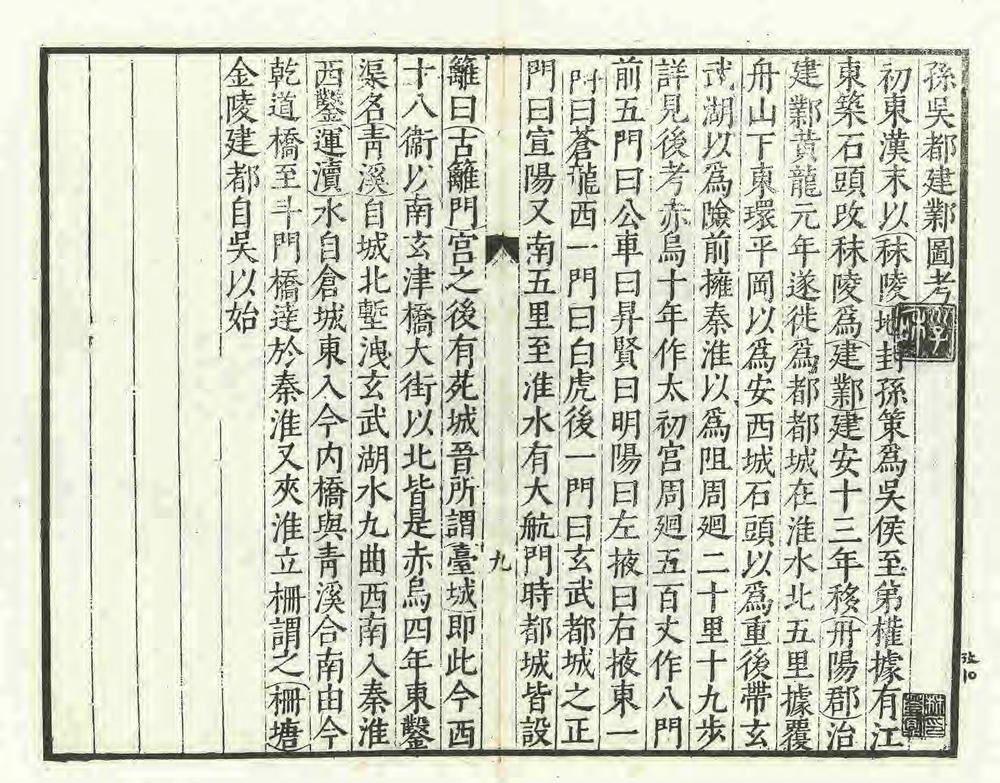 孫吳都建鄴圖考
初東漢末以秣陵地封孫策爲吳侯至第權據有江
東築石頭改秣陵爲建鄴建安十三年移丹陽郡治
建鄴黃龍元年遂徙爲都都城在淮水北五里據覆
舟山下東環平岡以爲安西城石頭以爲重後帶玄
武湖以爲險前擁秦淮以爲阻周廻二十里十九步
詳見後考赤烏十年作太初宮周廻五百丈作八門
前五門曰公車曰昇賢曰明陽曰左掖曰右掖東一
門曰蒼龍西一門曰白虎後一門曰玄武都城之正
門曰宣陽又南五里至淮水有大航門時都城皆設
九
籬曰古籬門宮之後有苑城晉所謂臺城即此今西
十八衞以南玄津橋大街以北皆是赤烏四年東鑿
渠名青溪自城北塹洩玄武湖水九曲西南入秦淮
西鑿運瀆水自倉城東入今內橋與青溪合南由今
乾道橋至斗門橋達於秦淮又夾淮立柵謂之柵塘
金陵建都自吳以始